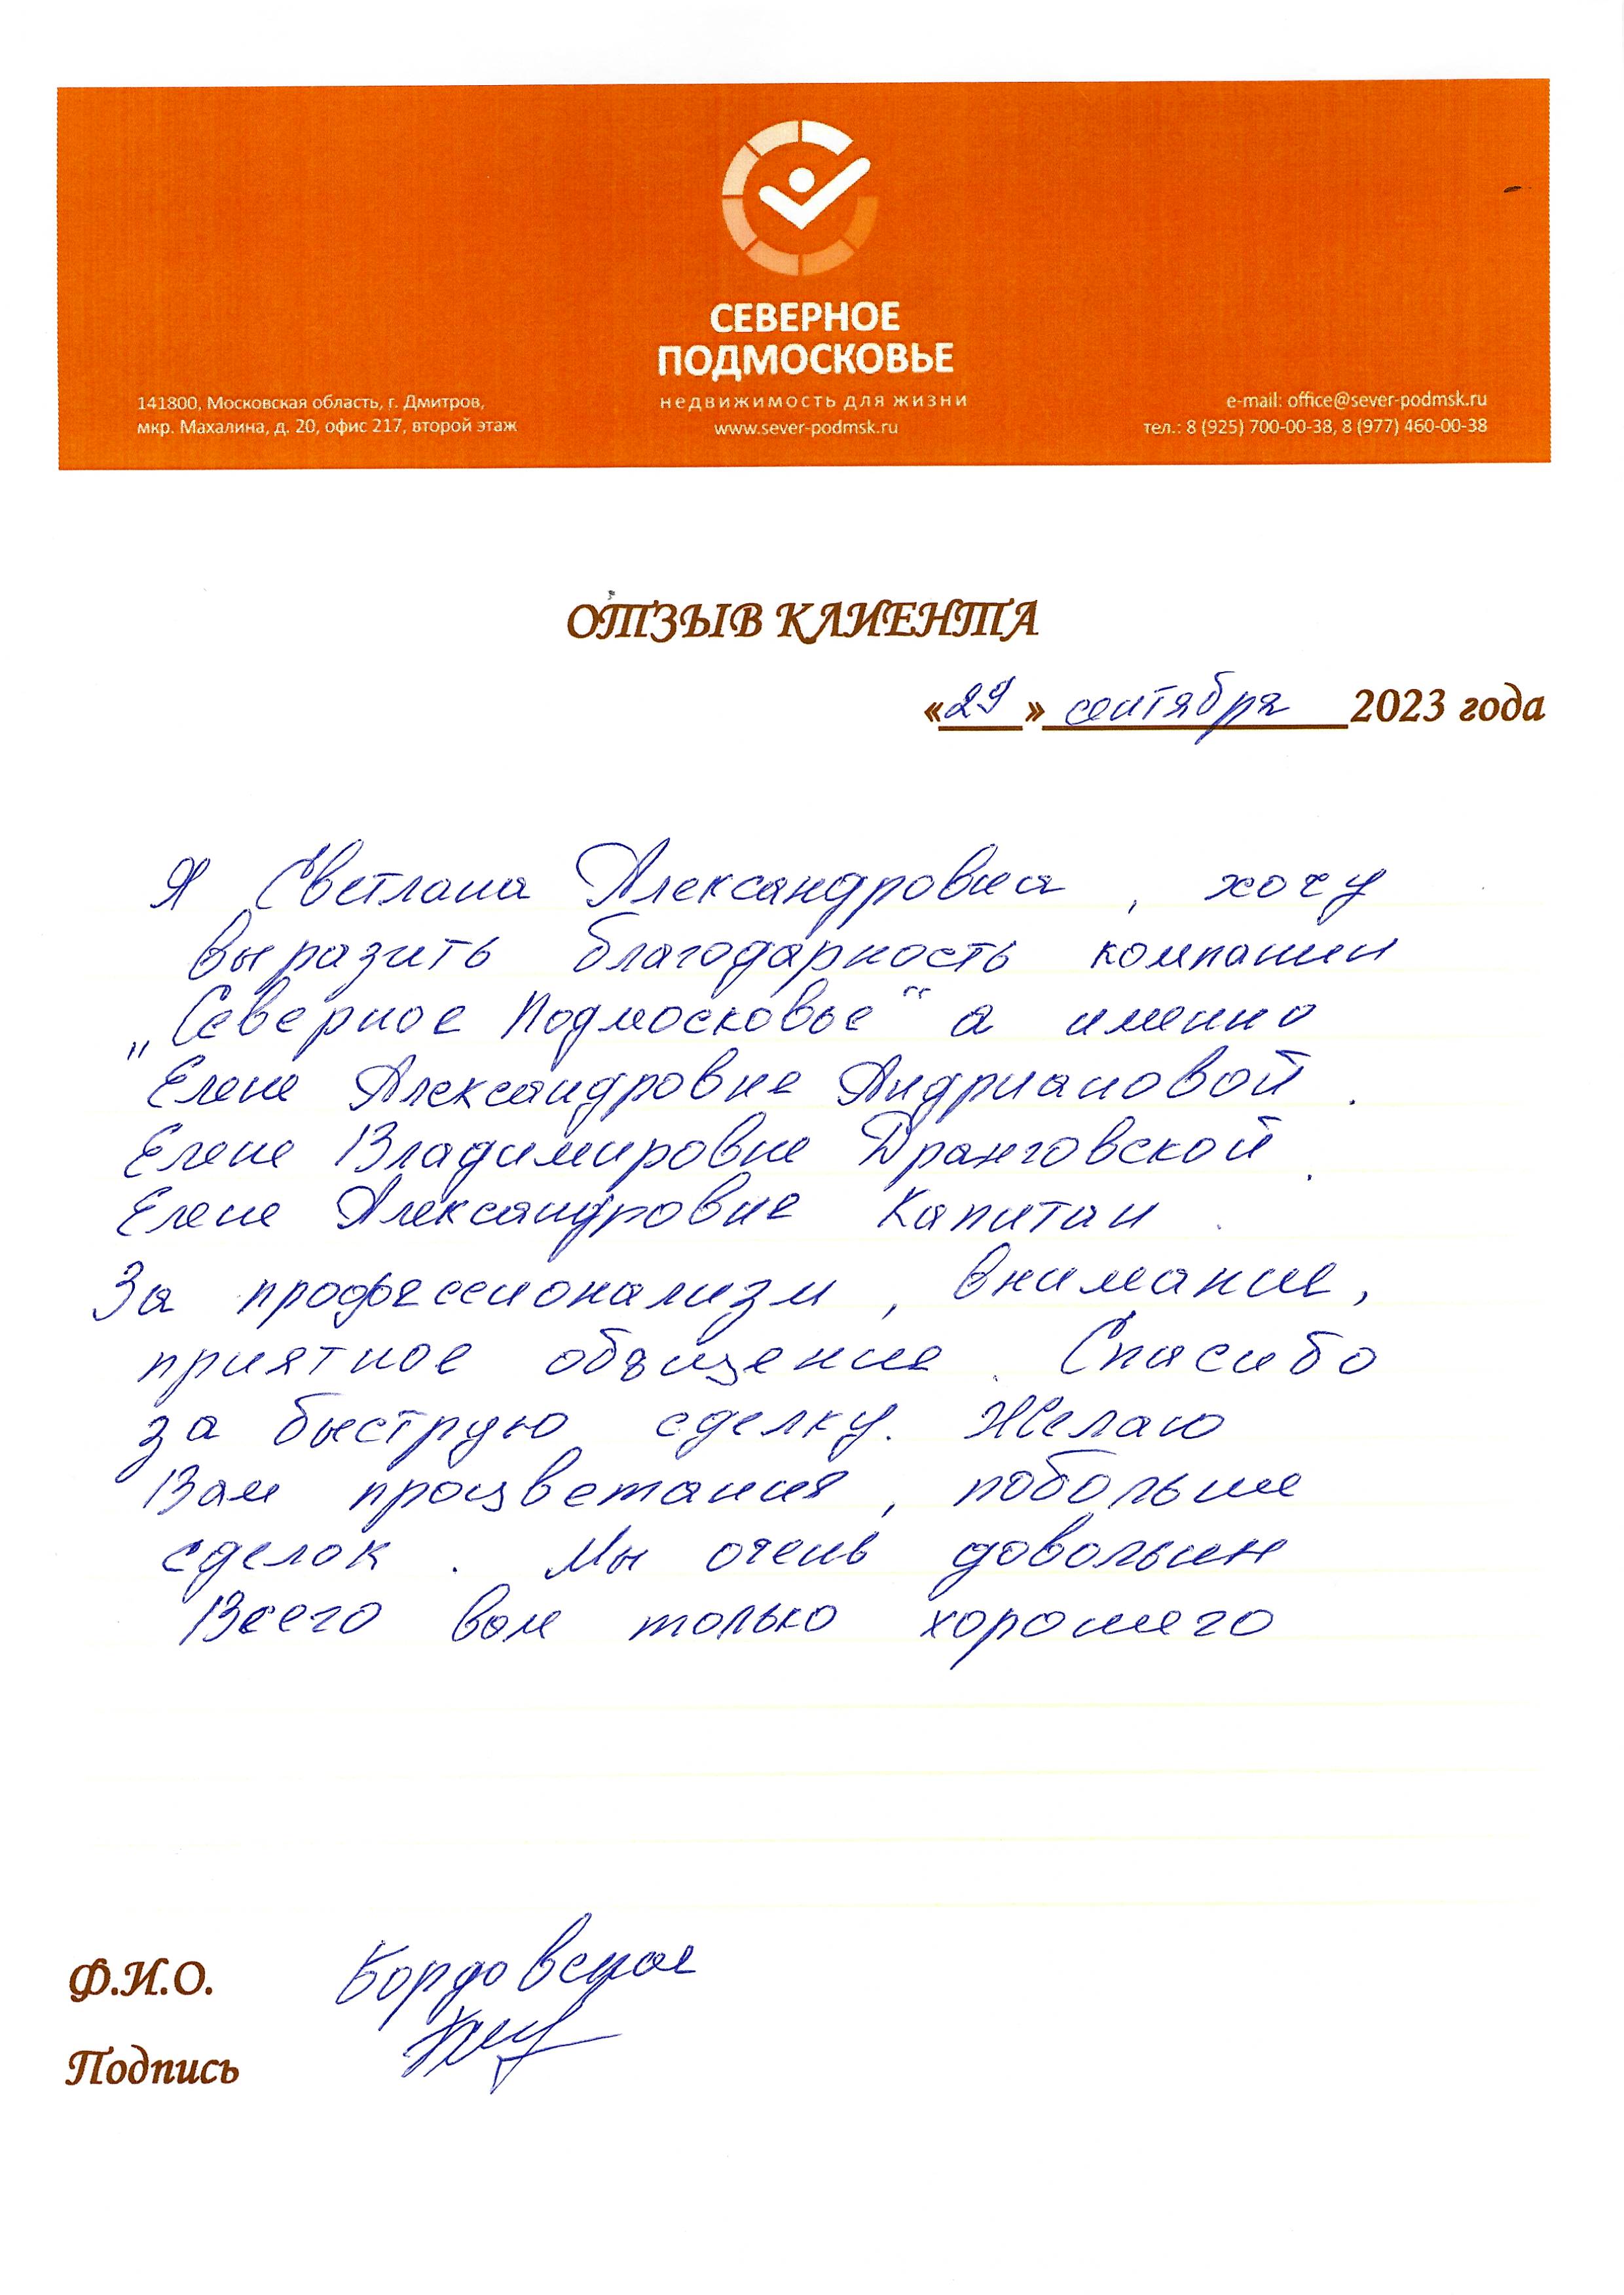 СЕВЕРНОЕ
ПОДМОСКОВЬЕ
недвижимость для жизни
www.sever-podmsk.ru
141800, Московская область, г. Дмитров,
мкр. Махалина, д. 20, офис 217, второй этаж
e-mail: office@sever-podmsk.ru
тел.: 8 (925) 700-00-38, 8 (977) 460-00-38
ОТЗЫВ КЛИЕНТА
«29» сентября 2023 года
Я Светлана Александровна, хочу
выразить благодарность компании
„Северное Подмосковье“ а именно
Елене Александровне Андриановой.
Елене Владимировне Дранговской.
Елене Александровне Капитан.
За профессионализм, внимание,
приятное общение. Спасибо
за быструю сделку. Желаю
Вам процветания, побольше
сделок. Мы очень довольны
Всего вам только хорошего
Ф.И.О.
Подпись